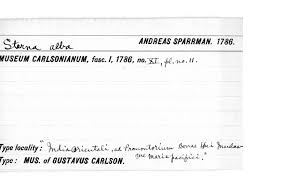 Sterna alba
ANDREAS SPARRMAN. 1786.
MUSEUM CARLSONIANUM, fasc. I, 1786, no. XI, pl. no. 11.
Type locality: "India orientali, ad Promontorium Bonae Spei Insulas
que maris pacifici."
Type: MUS. of GUSTAVUS CARLSON.